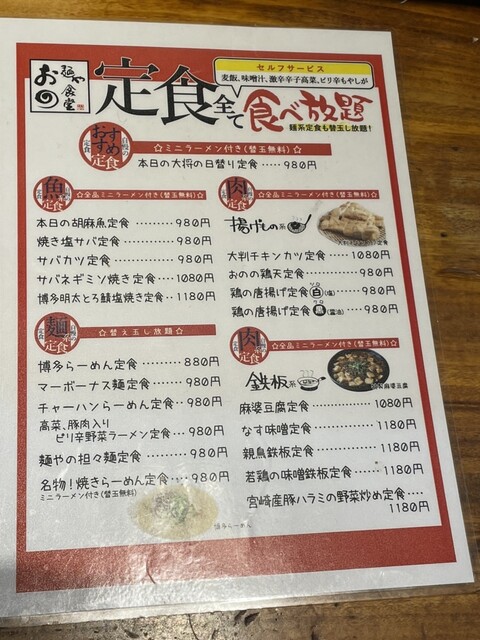 麺や食堂
おの
定食
全て
食べ放題
セルフサービス
麦飯、味噌汁、激辛辛子高菜、ピリ辛もやしが
麺系定食も替玉し放題!
おすすめ
定食
☆ミニラーメン付き(替玉無料)☆
本日の大将の日替り定食……980円
魚
定食
☆全品ミニラーメン付き(替玉無料)☆
本日の胡麻魚定食………980円
焼き塩サバ定食………980円
サバカツ定食…………980円
サバネギミソ焼き定食…1080円
博多明太とろ鯖塩焼き定食…1180円
麺
定食
☆替え玉し放題☆
博多らーめん定食………880円
マーボーナス麺定食……980円
チャーハンらーめん定食…980円
高菜、豚肉入り
ピリ辛野菜ラーメン定食…980円
麺やの担々麺定食……980円
名物!焼きらーめん定食…980円
ミニラーメン付き(替玉無料)
博多らーめん
肉
定食
☆全品ミニラーメン付き(替玉無料)☆
揚げもの系
大判チキンカツ定食
大判チキンカツ定食……1080円
おのの鶏天定食………980円
鶏の唐揚げ定食白(塩)……980円
鶏の唐揚げ定食黒(醤油)……980円
肉
定食
☆全品ミニラーメン付き(替玉無料)☆
鉄板系
麻婆豆腐
麻婆豆腐定食…………1080円
なす味噌定食…………1180円
親鳥鉄板定食…………1180円
若鶏の味噌鉄板定食……1180円
宮崎産豚ハラミの野菜炒め定食……
1180円